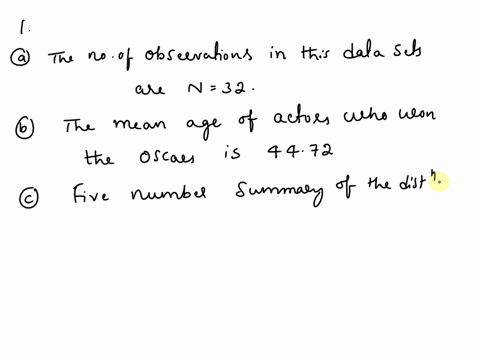 1.
(a) The no. of observations in this data sets
are N = 32.
(b) The mean age of actors who won
the oscars is 44.72
(c) Five number summary of the distⁿ.